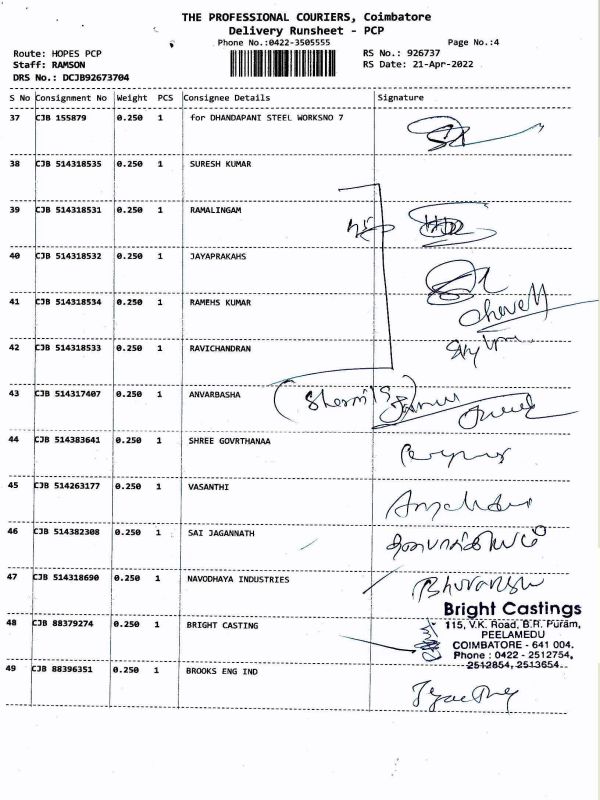 THE PROFESSIONAL COURIERS, Coimbatore
Delivery Runsheet - PCP
Phone No.:0422-3505555 Page No.:4
Route: HOPES PCP RS No.: 926737
Staff: RAMSON RS Date: 21-Apr-2022
DRS No.: DCJB92673704
S No Consignment No Weight PCS Consignee Details Signature
37 CJB 155879 0.250 1 for DHANDAPANI STEEL WORKSNO 7
38 CJB 514318535 0.250 1 SURESH KUMAR
39 CJB 514318531 0.250 1 RAMALINGAM
40 CJB 514318532 0.250 1 JAYAPRAKAHS
41 CJB 514318534 0.250 1 RAMEHS KUMAR
42 CJB 514318533 0.250 1 RAVICHANDRAN
43 CJB 514317407 0.250 1 ANVARBASHA
44 CJB 514383641 0.250 1 SHREE GOVRTHANAA
45 CJB 514263177 0.250 1 VASANTHI
46 CJB 514382308 0.250 1 SAI JAGANNATH
47 CJB 514318690 0.250 1 NAVODHAYA INDUSTRIES
Bright Castings
48 CJB 88379274 0.250 1 BRIGHT CASTING 115, V.K. Road, B.R. Puram,
PEELAMEDU
COIMBATORE - 641 004.
Phone : 0422 - 2512754,
2512854, 2513654
49 CJB 88396351 0.250 1 BROOKS ENG IND